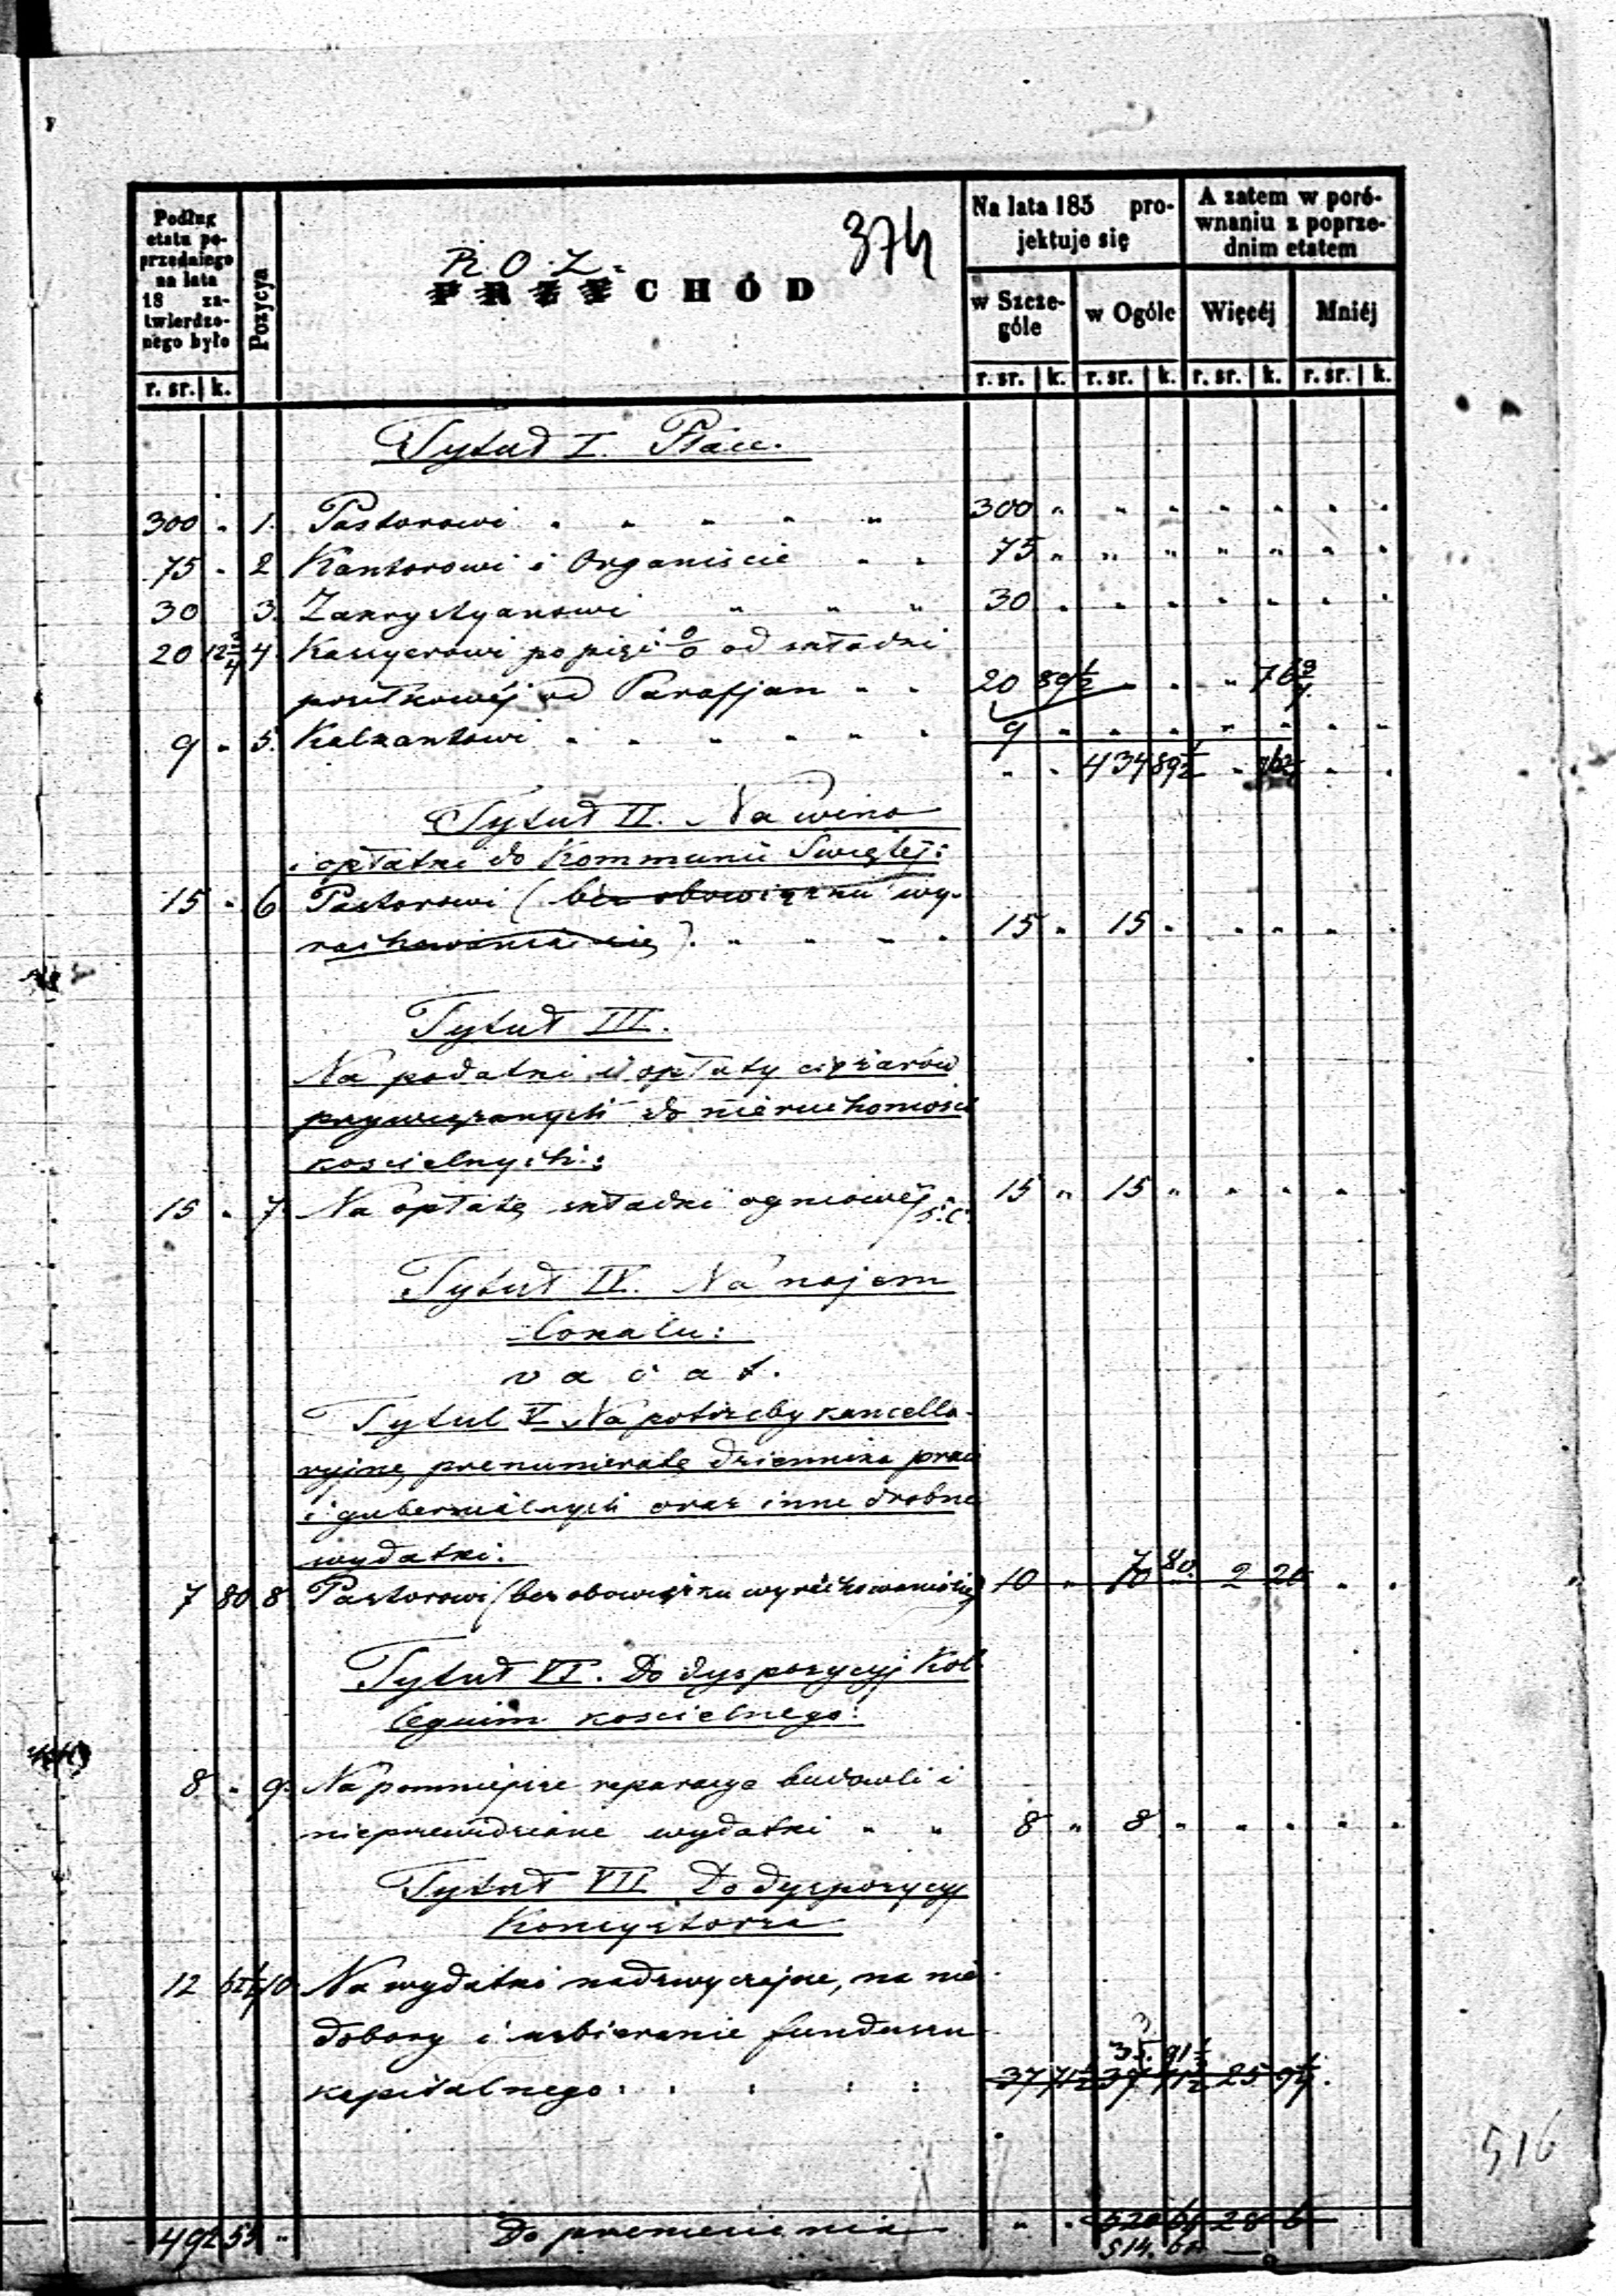 374
Podług etatu poprzedniego na lata 18 zatwierdzonego było
Pozycya
ROZ-
PRZYCHÓD
Na lata 185 projektuje się
A zatem w porównaniu z poprzednim etatem
w Szczególe
w Ogóle
Więcéj
Mniéj
r. sr. k. r. sr. k. r. sr. k. r. sr. k. r. sr. k.
Tytuł I. Płace.
300 " 1. Pastorowi " " " " " 300 " " " " " " "
75 " 2 Kantorowi i Organiście " " 75 " " " " " " "
30 3. Zakrystyanowi " " " 30 " " " " " " "
20 12 3/4 4. Kassyerowi po pięć 0/0 od składki
posiłkowéj od Parafjan " " 20 89 1/2 " " " 76 3/4
9 " 5. Kalkantowi " " " " " " 9 " " " " " " "
" " 434 89 1/2 " 76 3/4 " "
Tytuł II. Na wino
i opłatki do Kommunii Swiętej:
15 " 6 Pastorowi (bez obowiązku wy-
rachowania się). " " " " 15 " 15 " " " " "
Tytuł III.
Na podatki i opłaty ciężarów
przywiązanych do nieruchomości
koscielnych:
15 " 7. Na opłatę składki ogniowéj " 15 " 15 " " " " "
Tytuł IV. Na najem
lokalu:
vacat.
Tytul V Na potrzeby kancella-
ryjne, prenumeratę dziennika praw
i gubernialnych oraz inne drobne
wydatki.
7 80 8 Pastorowi (bez obowiązku wyrachowania się) 10 " 10 " 7 80. 2 20 " "
Tytuł VI. Do dyspozycyj Kol-
legium koscielnego:
8 " 9. Na pomniejsze reparacye budowli i
nieprzewidziane wydatki " " 8 " 8 " " " " "
Tytuł VII Do dyspozycyj
Konsystorza
12 10. Na wydatki nadzwyczajne, na nie-
dobory i uzbieranie funduszu
kapitalnego: : : : : 37 71 1/2 37 71 1/2 25 9 1/4.
492 55 " Do przeniesienia " " 28 6
514.
516